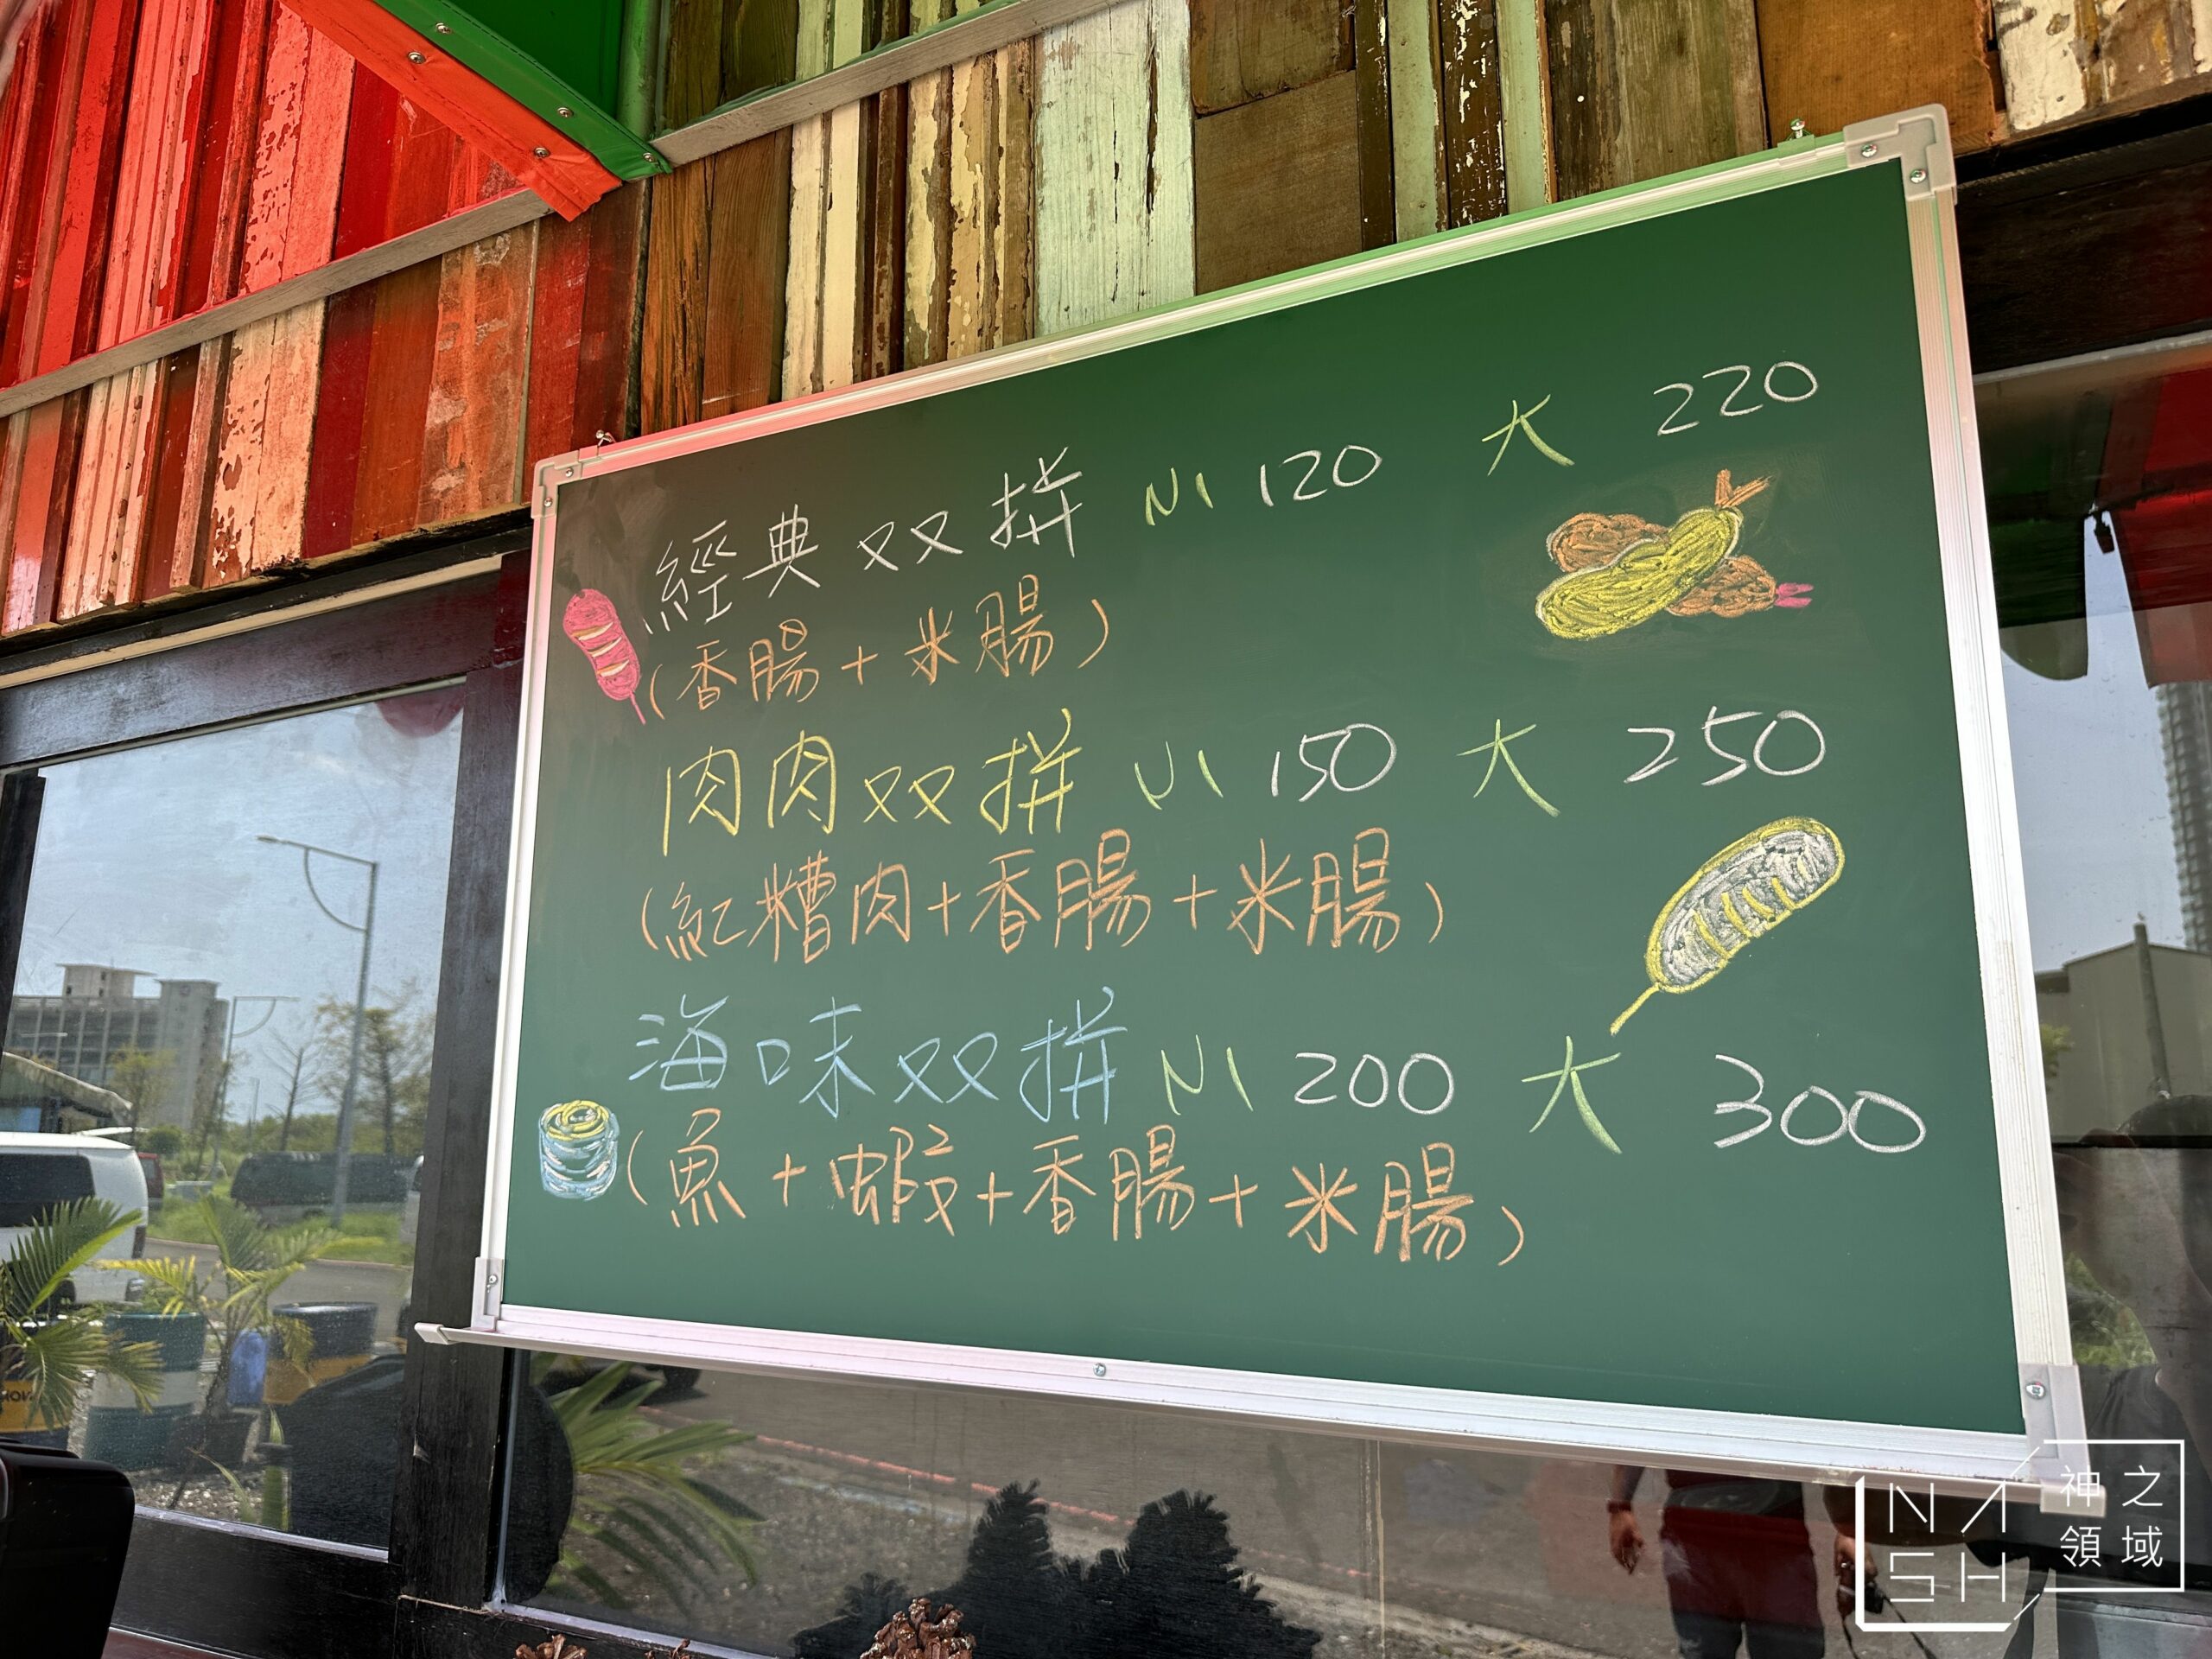 經典双拼 小 120 大 220
(香腸+米腸)
肉肉双拼 小 150 大 250
(紅糟肉+香腸+米腸)
海味双拼 小 200 大 300
(魚+蝦+香腸+米腸)
NASH 神之領域